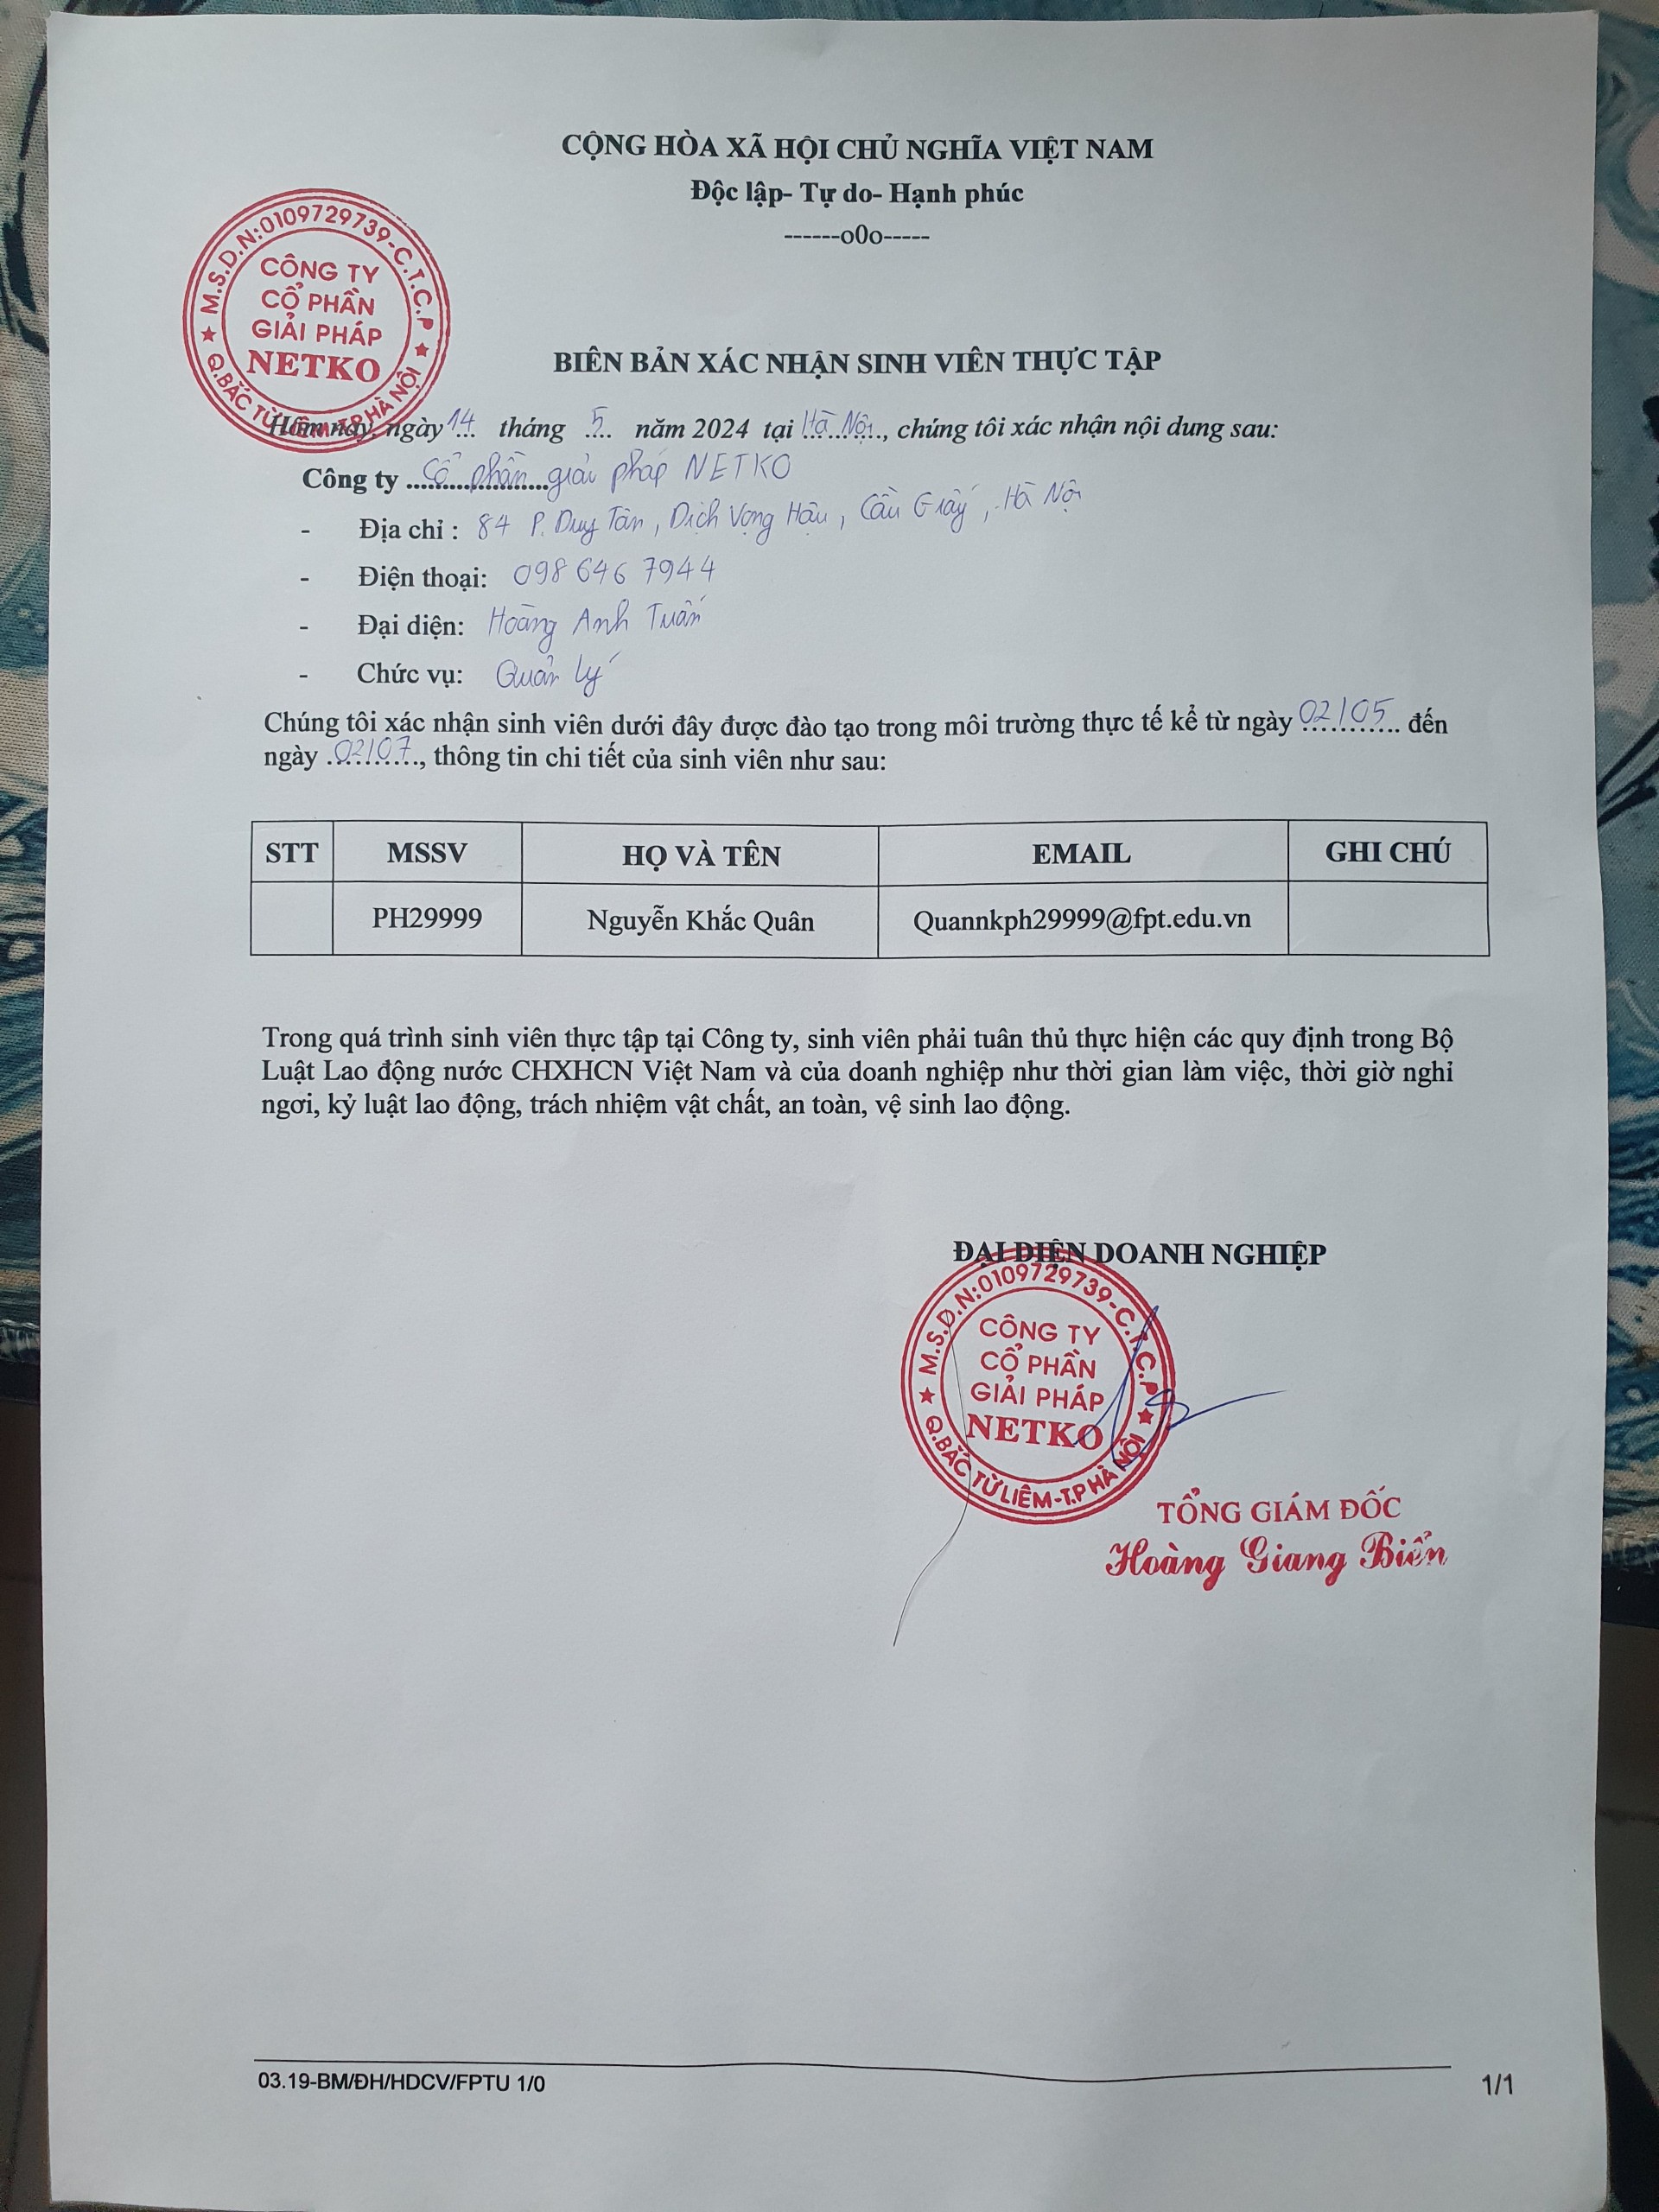 CỘNG HÒA XÃ HỘI CHỦ NGHĨA VIỆT NAM
Độc lập- Tự do- Hạnh phúc
------o0o-----
M.S.D.N:0109729739-C.T.C.P
CÔNG TY
CỔ PHẦN
GIẢI PHÁP
NETKO
Q.BẮC TỪ LIÊM-T.P HÀ NỘI
BIÊN BẢN XÁC NHẬN SINH VIÊN THỰC TẬP
Hôm nay, ngày 14 tháng 5 năm 2024 tại Hà Nội, chúng tôi xác nhận nội dung sau:
Công ty Cổ phần giải pháp NETKO
- Địa chỉ : 84 P. Duy Tân, Dịch Vọng Hậu, Cầu Giấy, Hà Nội
- Điện thoại: 098 646 7944
- Đại diện: Hoàng Anh Tuấn
- Chức vụ: Quản lý
Chúng tôi xác nhận sinh viên dưới đây được đào tạo trong môi trường thực tế kể từ ngày 02/05 đến
ngày 02/07, thông tin chi tiết của sinh viên như sau:
STT MSSV HỌ VÀ TÊN EMAIL GHI CHÚ
PH29999 Nguyễn Khắc Quân Quannkph29999@fpt.edu.vn
Trong quá trình sinh viên thực tập tại Công ty, sinh viên phải tuân thủ thực hiện các quy định trong Bộ
Luật Lao động nước CHXHCN Việt Nam và của doanh nghiệp như thời gian làm việc, thời giờ nghỉ
ngơi, kỷ luật lao động, trách nhiệm vật chất, an toàn, vệ sinh lao động.
ĐẠI DIỆN DOANH NGHIỆP
M.S.D.N:0109729739-C.T.C.P
CÔNG TY
CỔ PHẦN
GIẢI PHÁP
NETKO
Q.BẮC TỪ LIÊM-T.P HÀ NỘI
TỔNG GIÁM ĐỐC
Hoàng Giang Biển
03.19-BM/ĐH/HDCV/FPTU 1/0
1/1